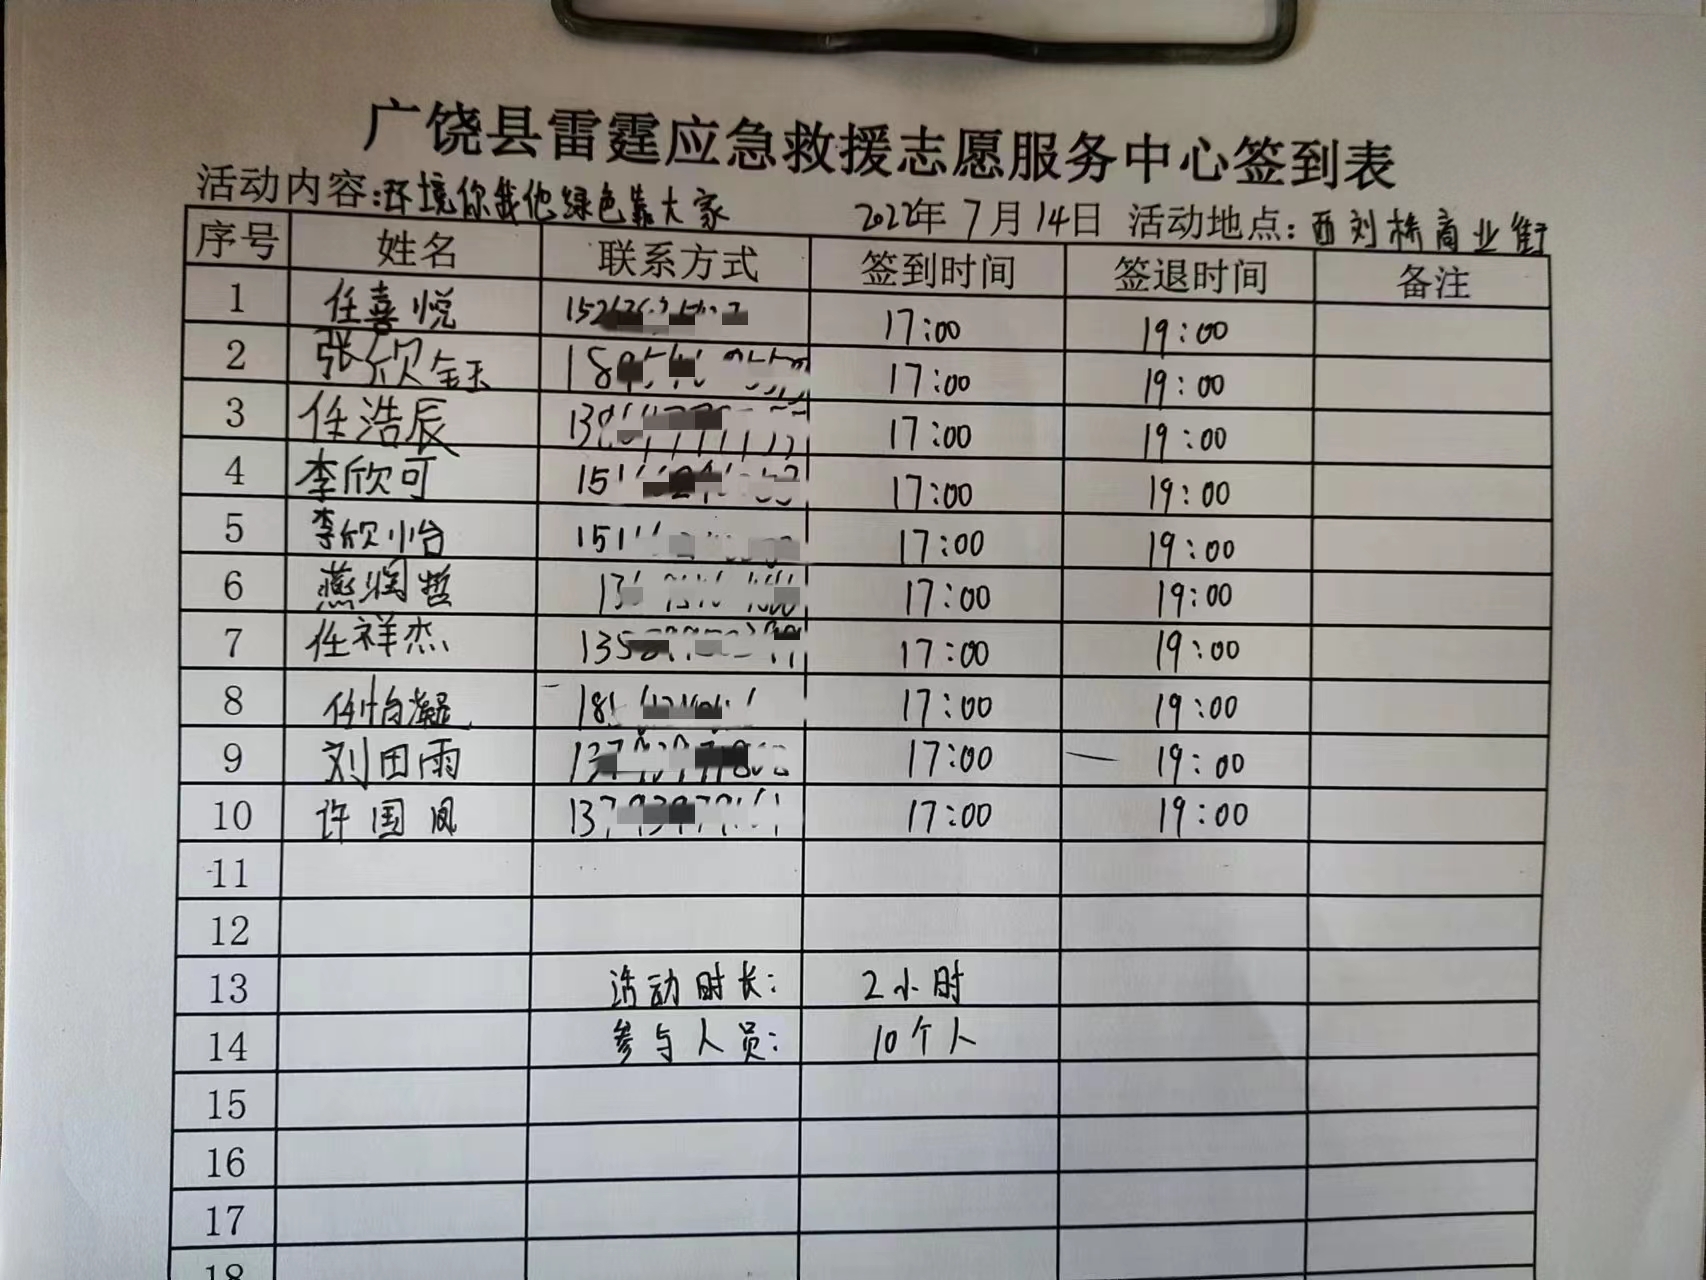 广饶县雷霆应急救援志愿服务中心签到表
活动内容:环境你我他绿色靠大家 2022年 7月14日 活动地点:西刘桥商业街
序号 姓名 联系方式 签到时间 签退时间 备注
1 任喜悦 17:00 19:00
2 张欣钰 17:00 19:00
3 任浩辰 17:00 19:00
4 李欣可 17:00 19:00
5 李欣怡 17:00 19:00
6 燕润哲 17:00 19:00
7 任祥杰 17:00 19:00
8 任怡凝 17:00 19:00
9 刘田雨 17:00 19:00
10 许国凤 17:00 19:00
11
12
13 活动时长: 2小时
14 参与人员: 10个人
15
16
17
18